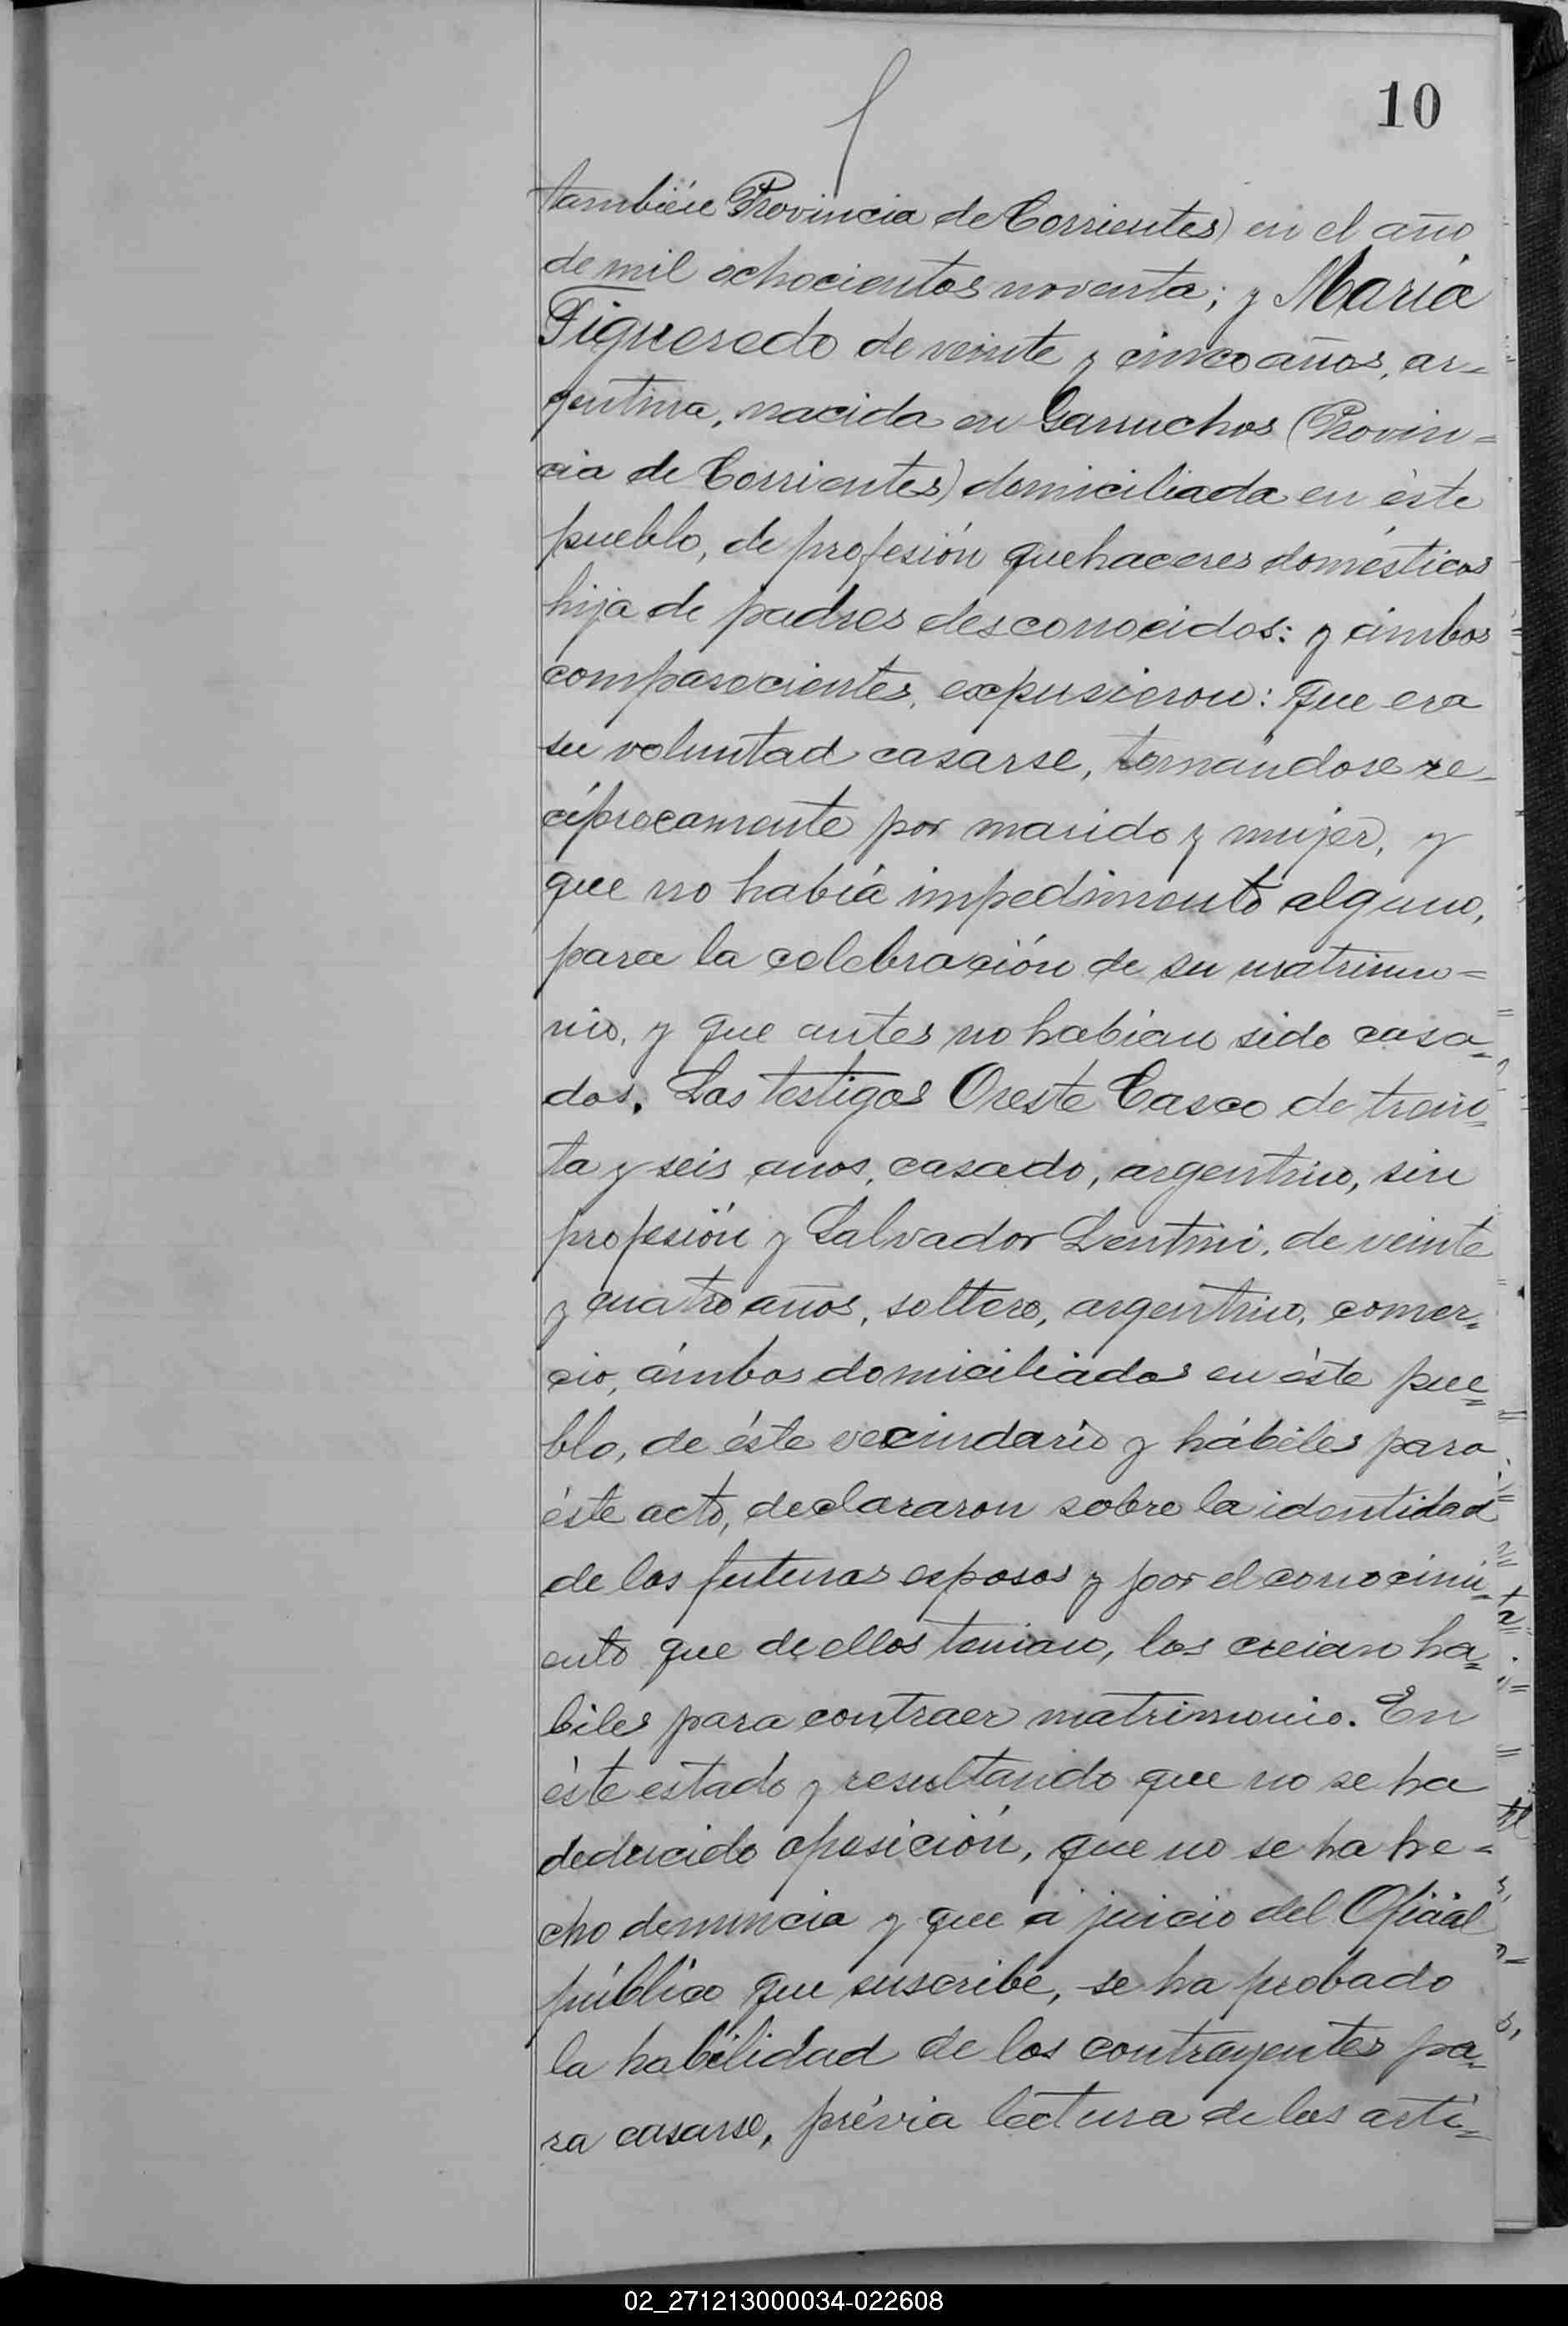 10
tambien Provincia de Corrientes) en el año
de mil ochocientos noventa; y Maria
Figueredo de veinte y cinco años, ar=
gentina, nacida en Garruchos (Provin=
cia de Corrientes) domiciliada en éste
pueblo, de profesión quehaceres domésticos
hija de padres desconocidos: y ámbos
comparecientes, expusieron: que era
su voluntad casarse, tomándose re-
cíprocamente por marido y mujer, y
que no había impedimento alguno,
para la celebración de su matrimo=
nio, y que antes no habian sido casa=
dos. Los testigos Oreste Casco de trein=
ta y seis anos, casado, argentino, sin
profesión y Salvador Lentini, de veinte
y cuatro años, soltero, argentino, comer=
cio, ámbos domiciliados en éste pue=
blo, de éste vecindario y hábiles para
éste acto, declararon sobre la identidad
de los futuros esposos y por el conocimi=
ento que de ellos tenian, los creian há=
biles para contraer matrimonio. En
éste estado y resultando que no se ha
deducido oposición, que no se ha he=
cho denuncia y que á juicio del Oficial
público que suscribe, se ha probado
la habilidad de los contrayentes pa=
ra casarse, prévia lectura de los artí=
02_271213000034-022608